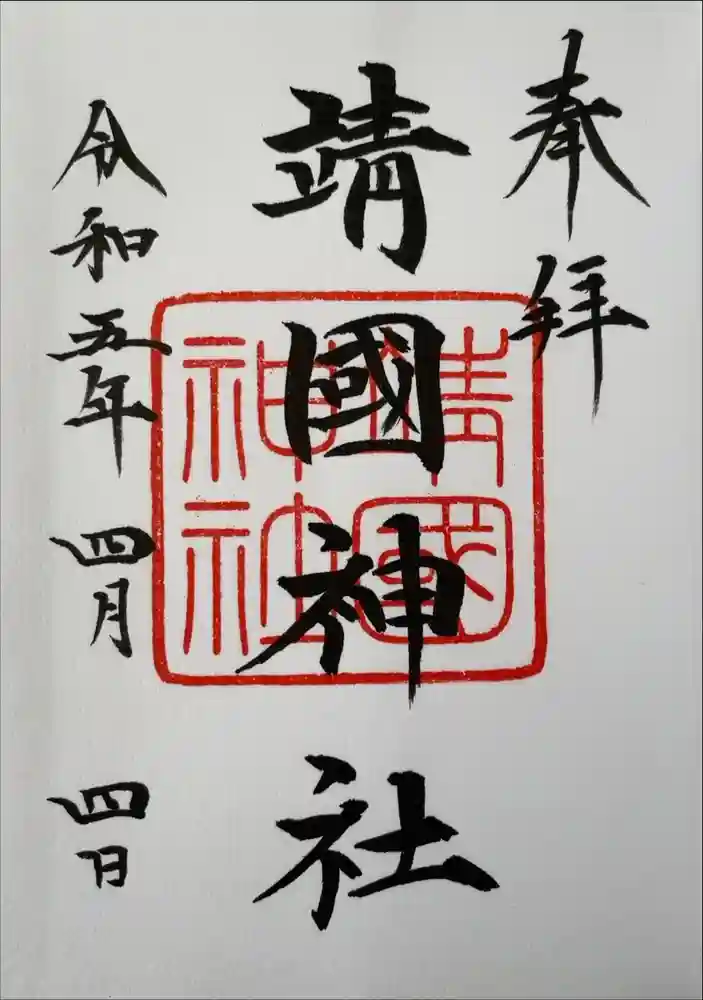 奉拝
靖國神社
靖國
神社
令和五年 四月 四日